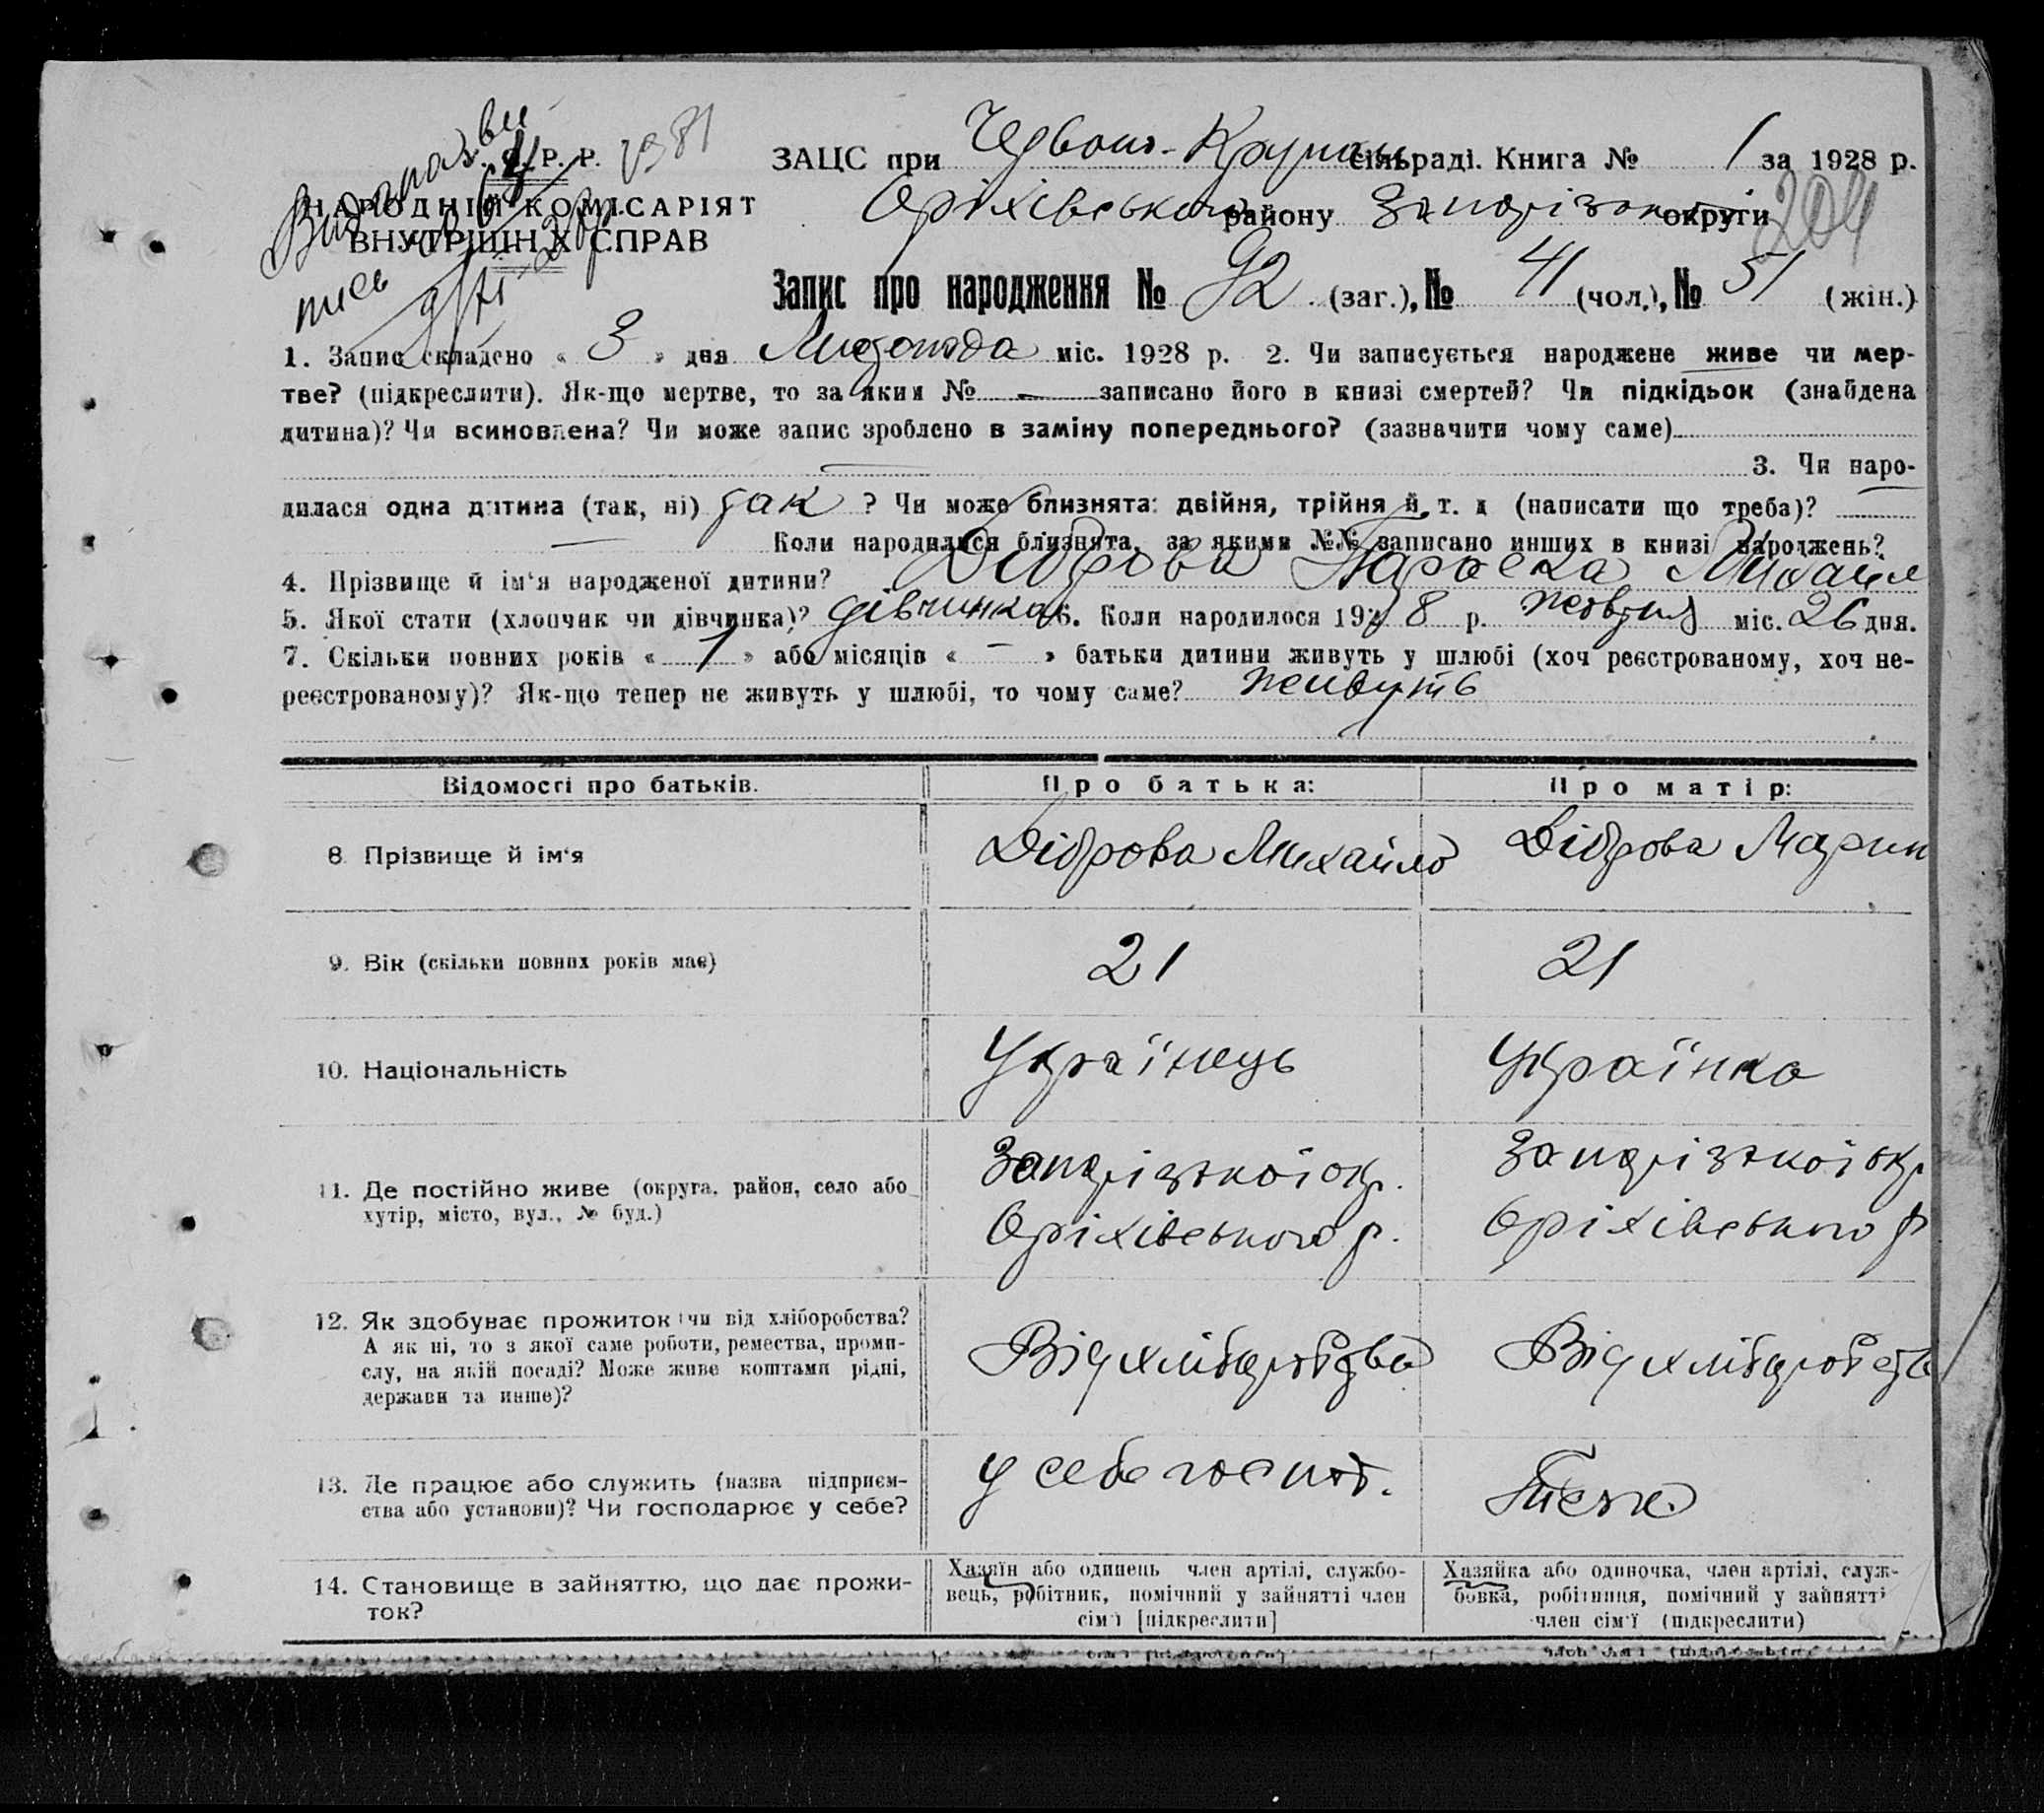 С. Р. Р.
НАРОДНІЙ КОМІСАРІЯТ
ВНУТРІШНІХ СПРАВ
ЗАЦС при Червоно- сільраді. Книга № 1 за 1928 р.
Оріхівського району Запорізької округи
204
Запис про народження № 92 (заг.), № 41 (чол.), № 51 (жін.)
1. Запис складено « 3 » дня Листопада міс. 1928 р. 2. Чи записується народжене живе чи мер-
тве? (підкреслити). Як-що мертве, то за яким № — записано його в книзі смертей? Чи підкідьок (знайдена
дитина)? Чи всиновлена? Чи може запис зроблено в заміну попереднього? (зазначити чому саме)
— 3. Чи наро-
дилася одна дитина (так, ні) так ? Чи може близнята: двійня, трійня й т. д (написати що треба)?
— Коли народилися близнята, за якими №№ записано инших в книзі народжень?
4. Прізвище й ім‘я народженої дитини? Діброва Параска Михайл
5. Якої стати (хлопчик чи дівчинка)? дівчинка 6. Коли народилося 1928 р. жовтня міс. 26 дня.
7. Скільки повних років « 1 » або місяців « – » батьки дитини живуть у шлюбі (хоч реєстрованому, хоч не-
реєстрованому)? Як-що тепер не живуть у шлюбі, то чому саме? живуть
Відомості про батьків. Про батька: Про матір:
8. Прізвище й ім‘я Діброва Михайло Діброва Марин
9. Вік (скільки повних років має) 21 21
10. Національність Українець Українка
11. Де постійно живе (округа, район, село або
хутір, місто, вул., № буд.)
Запорізької окр.
Оріхівського р.
Запорізької окр.
Оріхівського р
12. Як здобуває прожиток: чи від хліборобства?
А як ні, то з якої саме роботи, ремества, проми-
слу, на якій посаді? Може живе коштами рідні,
держави та инше)?
Від хліборобства
Від хліборобств
13. Де працює або служить (назва підприєм-
ства або установи)? Чи господарює у себе?
у себе господ.
Теж
14. Становище в зайняттю, що дає прожи-
ток?
Хазяїн або одинець член артілі, службо-
вець, робітник, помічний у зайнятті член
сім‘ї [підкреслити]
Хазяйка або одиночка, член артілі, служ-
бовка, робітниця, помічний у зайнятті
член сім‘ї (підкреслити)